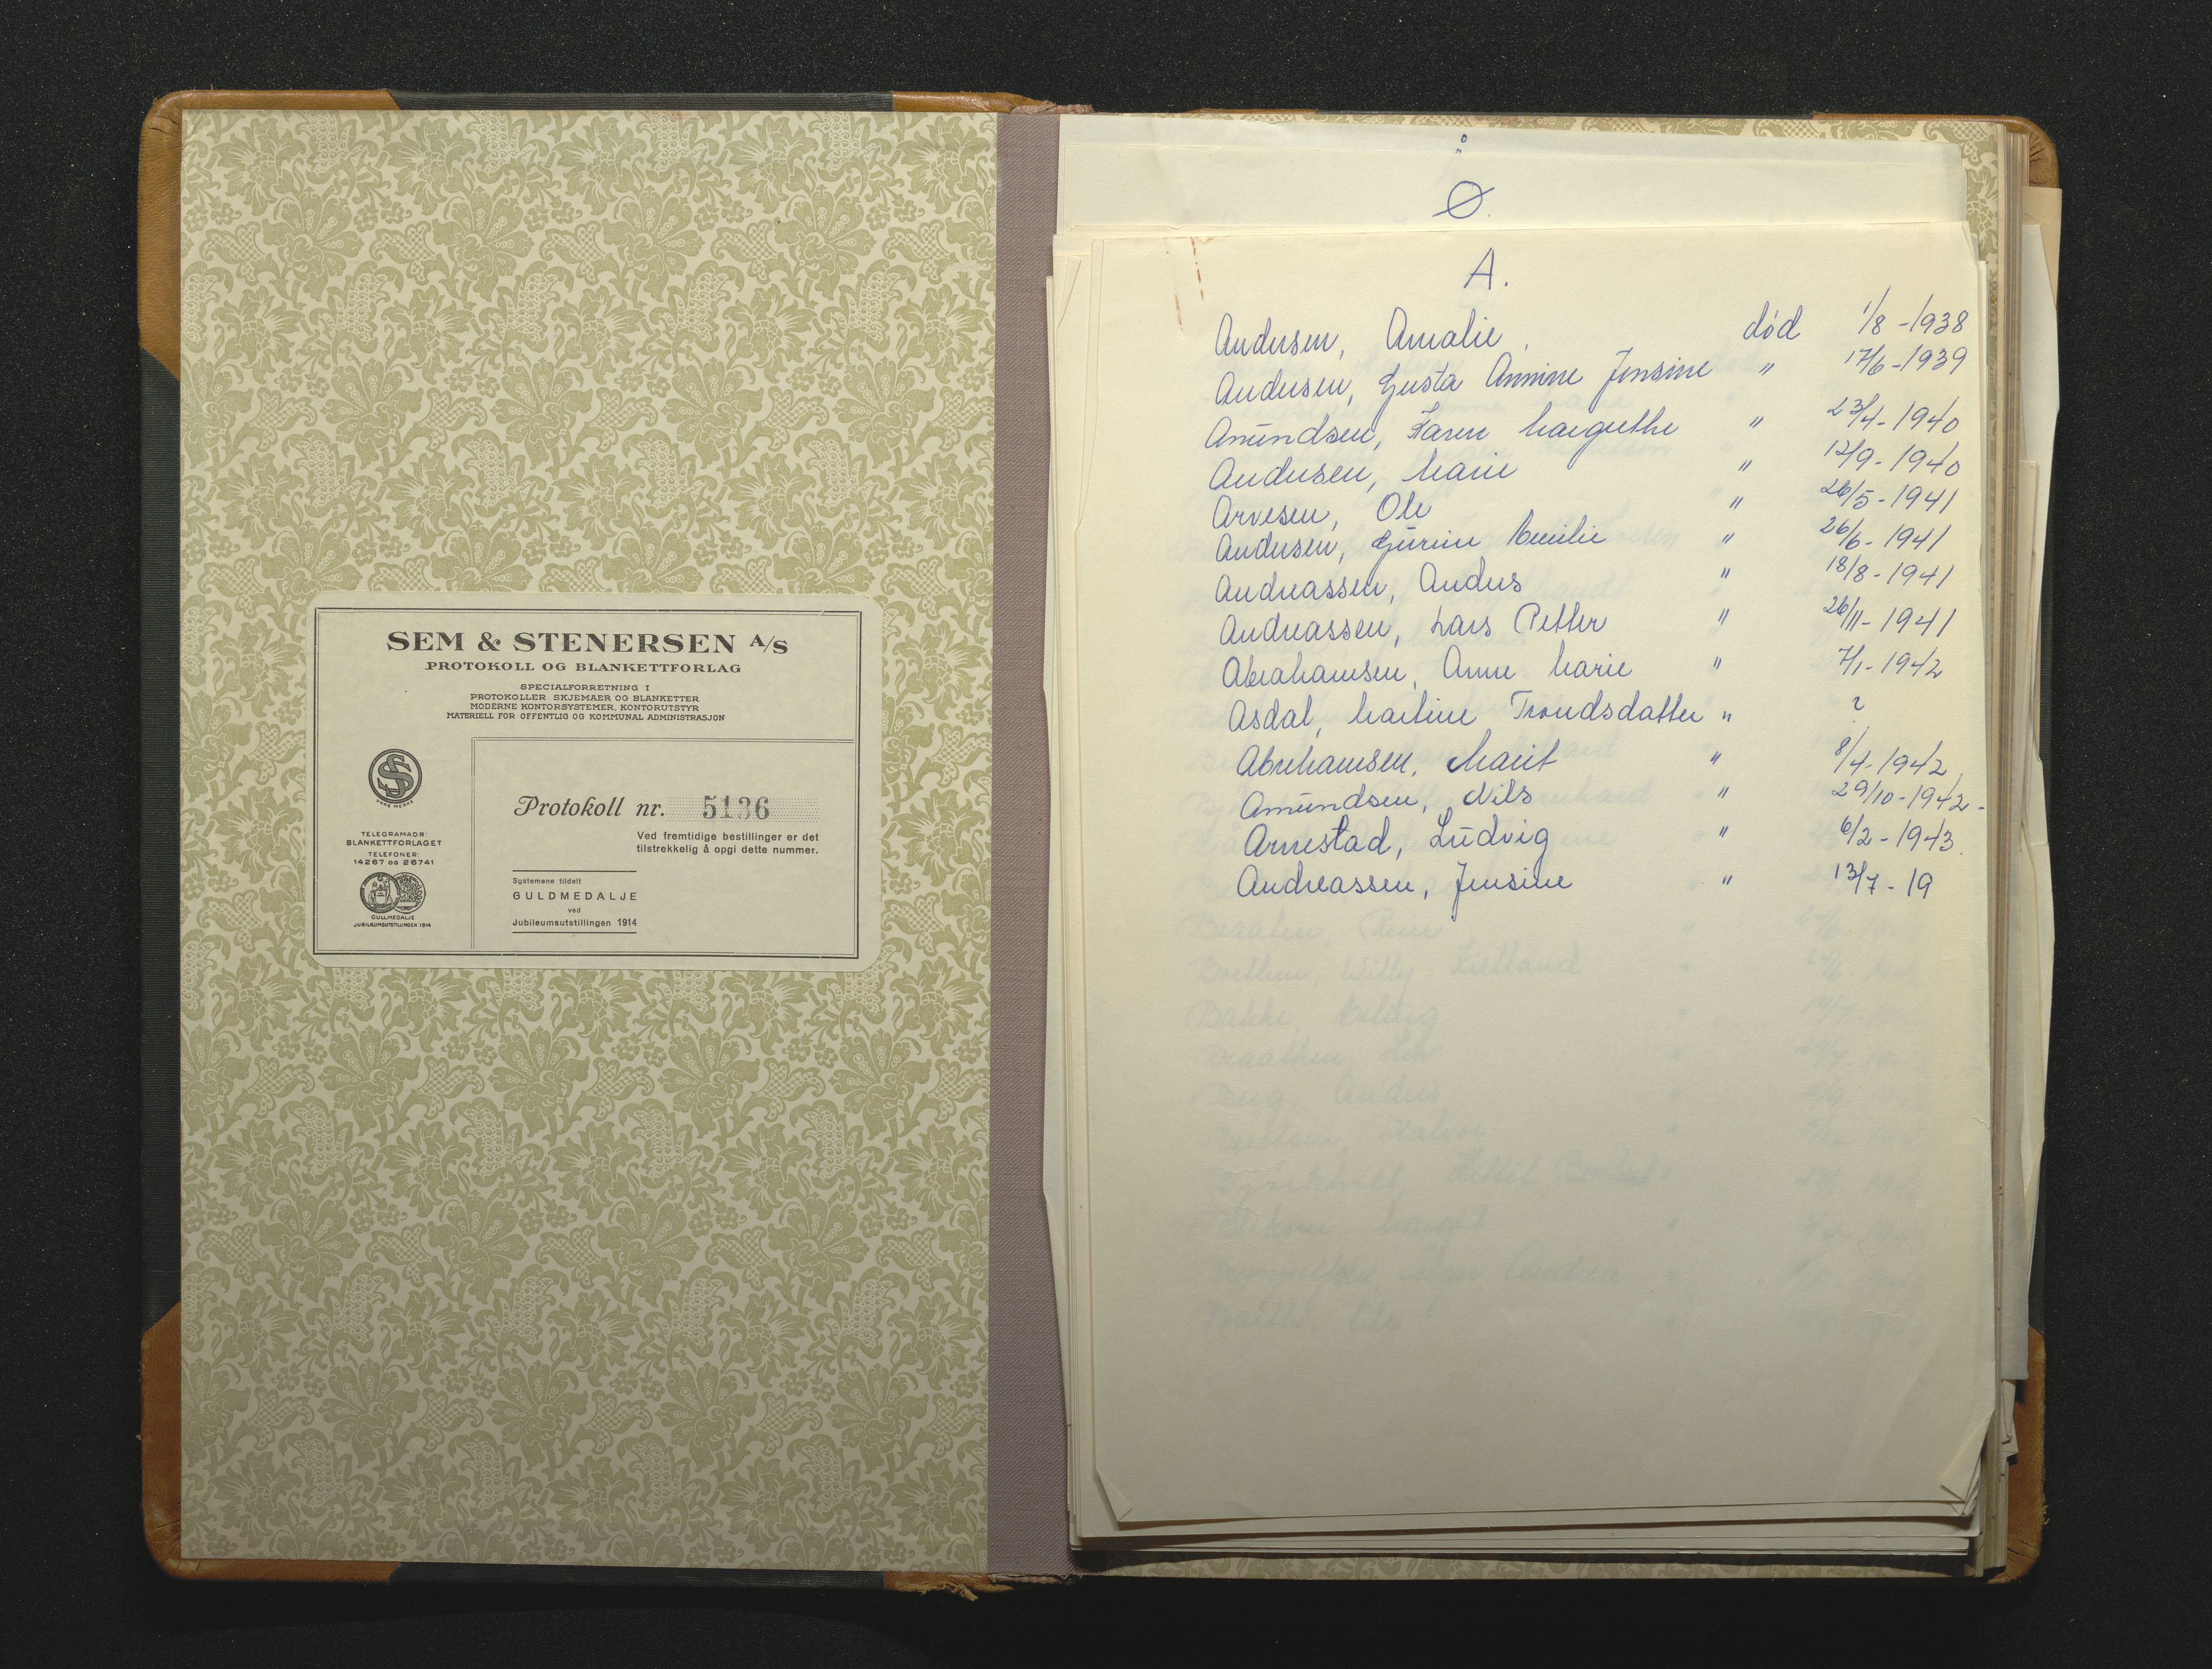 SEM & STENERSEN A/S
PROTOKOLL OG BLANKETTFORLAG
SPECIALFORRETNING I
PROTOKOLLER SKJEMAER OG BLANKETTER
MODERNE KONTORSYSTEMER, KONTORUTSTYR
MATERIELL FOR OFFENTLIG OG KOMMUNAL ADMINISTRASJON
VARE MERKE
TELEGRAMADR:
BLANKETTFORLAGET
TELEFONER:
14267 OG 26741
GULLMEDALJE
JUBILEUMSUTSTILLINGEN 1914
Protokoll nr. 5136
Ved fremtidige bestillinger er det
tilstrekkelig å opgi dette nummer.
Systemene tildelt
GULDMEDALJE
ved
Jubileumsutstillingen 1914
Ø.
A.
Andersen, Amalie, død 1/8 -1938
Andersen, Gusta Annine Jensine " 17/6 -1939
Amundsen, Karen Margrethe " 23/4 - 1940
Andersen, Marie " 12/9 - 1940
Arvesen, Ole " 26/5 - 1941
Andersen, Gurine Emilie " 26/6 - 1941
Andreassen, Anders " 18/8 - 1941
Andreassen, Lars Petter " 26/11 - 1941
Abrahamsen, Anne Marie " 7/1 - 1942
Asdal, Martine Trondsdatter " ?
Abrahamsen, Marit " 8/4 - 1942
Amundsen, Nils " 29/10 - 1942 -
Arnestad, Ludvig " 6/2 - 1943.
Andreassen, Jensine " 13/7 - 19